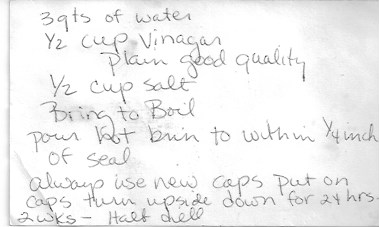 3 qts of water
1/2 cup Vinagar
plain good quality
1/2 cup salt
Bring to Boil
pour hot brin to within 1/4 inch
of seal
always use new caps put on
caps turn upside down for 24 hrs.
2 wks - Half dill